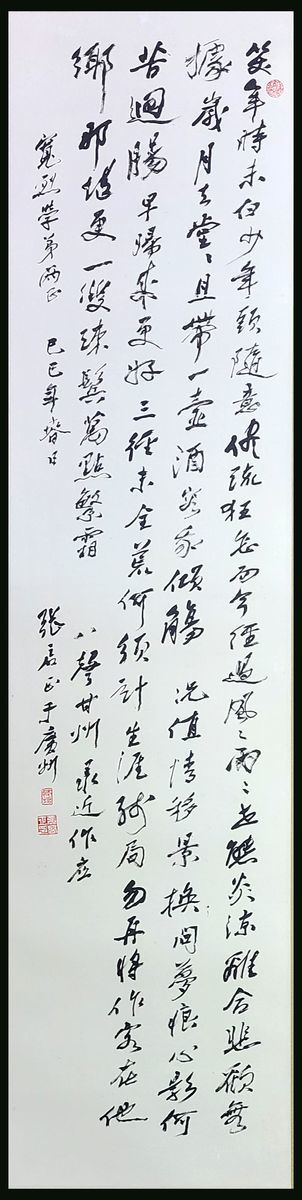 笑年時未白少年頭隨意儘疏狂怎而今經過風〻雨〻世態炎涼離合悲歡無
據歲月去堂〻且帶一壺酒容我傾觴 況值情移景換問夢痕心影何
苦迴腸早歸來更好三徑未全荒何須計生涯殘局勿再將作客在他
鄉那堪更一雙疎鬢萬點繁霜
八聲甘州錄近作应
寬熙學弟兩正 己巳年春日
張 正于廣州